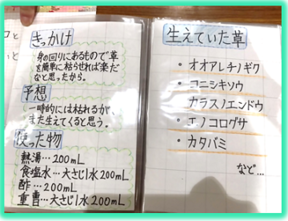 きっかけ
身の回りにあるもので草
を簡単に枯らせれば楽だ
なと思ったから。
予想
一時的には枯れるが、
また生えてくると思う。
使った物
熱湯…200mL
食塩水…大さじ1水200mL
酢…200mL
重曹…大さじ1水200mL
生えていた草
・オオアレチノギク
・コニシキソウ
カラスノエンドウ
・エノコログサ
・カタバミ
など…